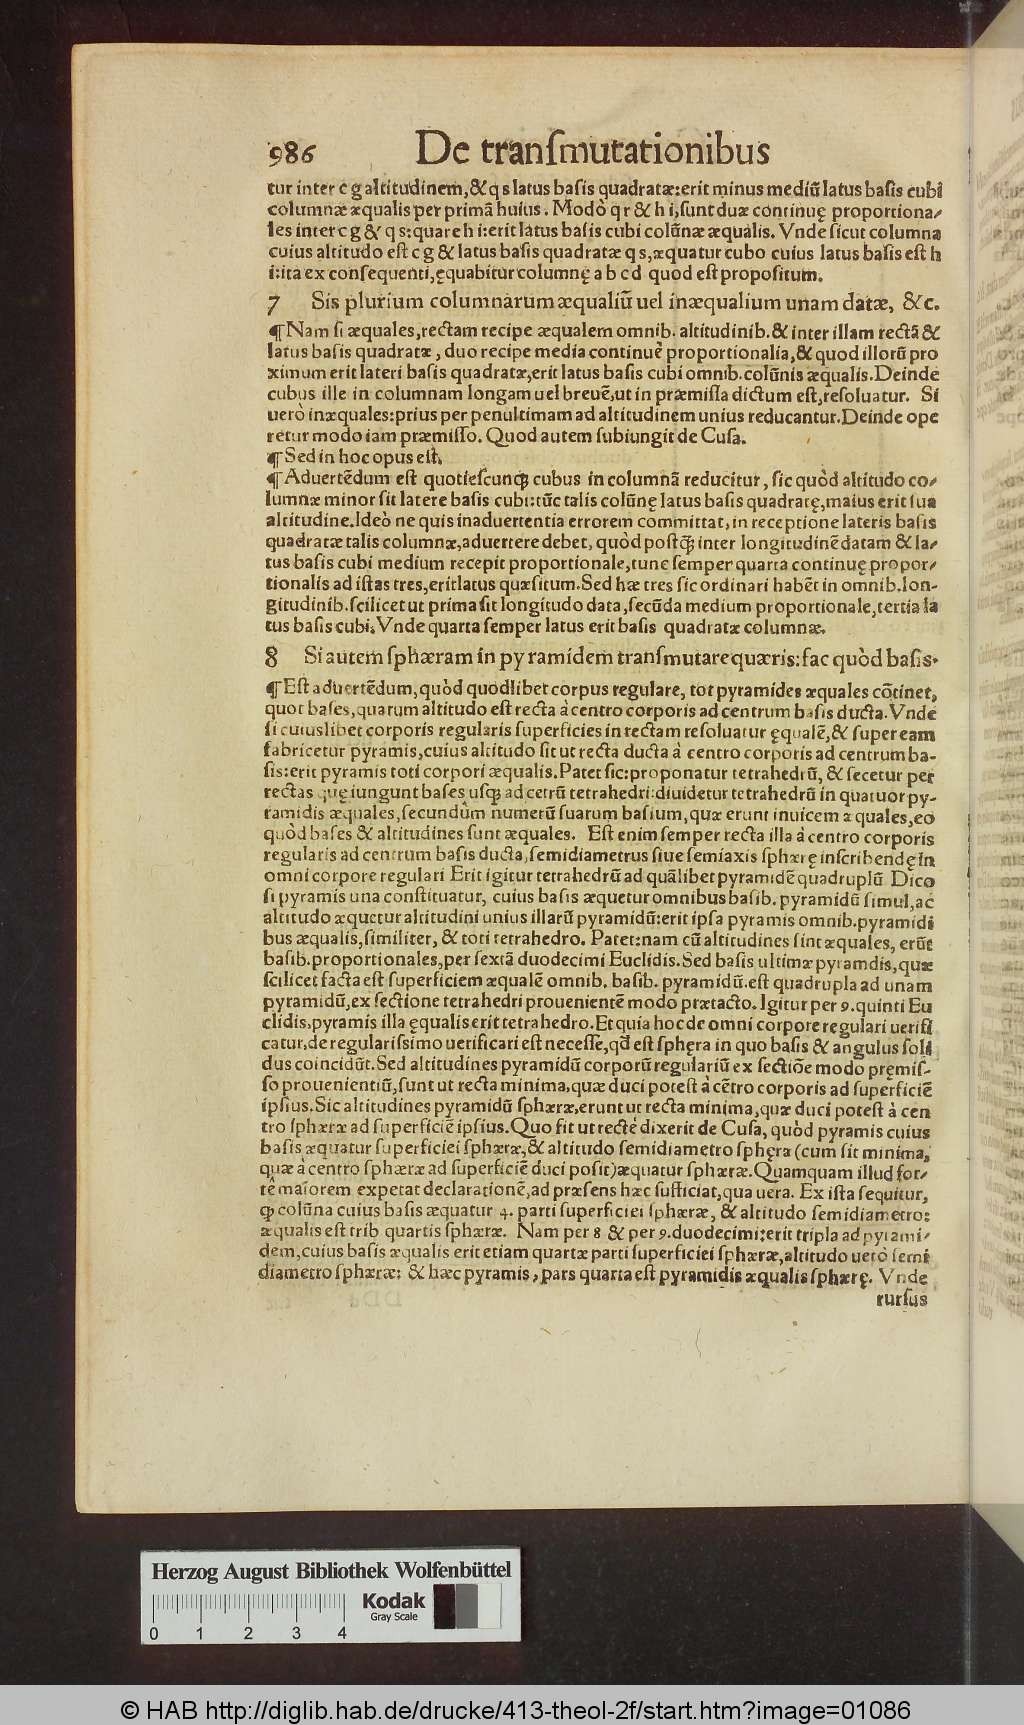 986 De tranſmutationibus
tur inter c g altitudinem,& q s latus baſis quadratæ:erit minus mediũ latus baſis cubi
columnæ æqualis per primã huius. Modò q r & h i,ſunt duæ continuę proportiona/
les inter c g & q s:quare h i:erit latus baſis cubi colũnæ æqualis. Vnde ſicut columna
cuius altitudo eſt c g & latus baſis quadratæ q s,æquatur cubo cuius latus baſis eſt h
i:ita ex conſequenti,ęquabitur columnę a b c d quod eſt propoſitum.
7 Sis plurium columnarum æqualiũ uel inæqualium unam datæ, &c.
¶Nam ſi æquales,rectam recipe æqualem omnib. altitudinib.& inter illam rectã &
latus baſis quadratæ, duo recipe media continuè proportionalia,& quod illorũ pro
ximum erit lateri baſis quadratæ,erit latus baſis cubi omnib.colũnis æqualis.Deinde
cubus ille in columnam longam uel breuẽ,ut in præmiſſa dictum eſt,reſoluatur. Si
uerò inæquales:prius per penultimam ad altitudinem unius reducantur.Deinde ope
retur modo iam præmiſſo. Quod autem ſubiungit de Cuſa.
¶Sed in hoc opus eſt.
¶Aduertẽdum eſt quotieſcunqꝫ cubus in columnã reducitur, ſic quòd altitudo co/
lumnæ minor ſit latere baſis cubi:tũc talis colũnę latus baſis quadratę,maius erit ſua
altitudine.Ideò ne quis inaduertentia errorem committat,in receptione lateris baſis
quadratæ talis columnæ,aduertere debet, quòd poſtꝗ̃ inter longitudinẽ datam & la/
tus baſis cubi medium recepit proportionale,tunc ſemper quarta continuę propor/
tionalis ad iſtas tres,erit latus quæſitum.Sed hæ tres ſic ordinari habẽt in omnib.lon-
gitudinib.ſcilicet ut prima ſit longitudo data,ſecũda medium proportionale,tertia la
tus baſis cubi.Vnde quarta ſemper latus erit baſis quadratæ columnæ.
8 Si autem ſphæram in pyramidem tranſmutare quæris:fac quòd baſis.
¶Eſt aduertẽdum,quòd quodlibet corpus regulare, tot pyramides æquales cõtinet,
quot baſes,quarum altitudo eſt recta à centro corporis ad centrum baſis ducta.Vnde
ſi cuiuslibet corporis regularis ſuperficies in rectam reſoluatur ęqualẽ,& ſuper eam
fabricetur pyramis,cuius altitudo ſit ut recta ducta à centro corporis ad centrum ba-
ſis:erit pyramis toti corpori æqualis.Patet ſic:proponatur tetrahedrũ, & ſecetur per
rectas quę iungunt baſes uſqꝫ ad cẽtrũ tetrahedri:diuidetur tetrahedrũ in quatuor py-
ramidis æquales,ſecundùm numerũ ſuarum baſium,quæ erunt inuicem æquales,eo
quòd baſes & altitudines ſunt æquales. Eſt enim ſemper recta illa à centro corporis
regularis ad centrum baſis ducta,ſemidiametrus ſiue ſemiaxis ſphærę inſcribendę in
omni corpore regulari Erit igitur tetrahedrũ ad quãlibet pyramidẽ quadruplũ Dico
ſi pyramis una conſtituatur, cuius baſis æquetur omnibus baſib. pyramidũ ſimul,ac
altitudo æquetur altitudini unius illarũ pyramidũ:erit ipſa pyramis omnib.pyramidi
bus æqualis,ſimiliter, & toti tetrahedro. Patet:nam cũ altitudines ſint æquales, erũt
baſib.proportionales,per ſextã duodecimi Euclidis.Sed baſis ultimæ pyramdis,quæ
ſcilicet facta eſt ſuperficiem æqualẽ omnib. baſib. pyramidũ.eſt quadrupla ad unam
pyramidũ,ex ſectione tetrahedri prouenientẽ modo prætacto.Igitur per 9.quinti Eu
clidis,pyramis illa ęqualis erit tetrahedro.Et quia hoc de omni corpore regulari uerifi
catur,de regulariſſimo uerificari eſt neceſſe,qđ eſt ſphęra in quo baſis & angulus ſoli
dus coincidũt.Sed altitudines pyramidũ corporũ regulariũ ex ſectiõe modo pręmiſ-
ſo prouenientiũ,ſunt ut recta minima,quæ duci poteſt à cẽtro corporis ad ſuperficiẽ
ipſius.Sic altitudines pyramidũ ſphæræ,erunt ut recta minima,quæ duci poteſt à cen
tro ſphæræ ad ſuperficiẽ ipſius.Quo fit ut rectè dixerit de Cuſa, quòd pyramis cuius
baſis æquatur ſuperficiei ſphæræ,& altitudo ſemidiametro ſphęra (cum ſit minima,
quæ à centro ſphæræ ad ſuperficiẽ duci poſit)æquatur ſphæræ.Quamquam illud for/
tè maiorem expetat declarationẽ,ad præſens hæc ſufficiat,qua uera. Ex iſta ſequitur,
ꝙ colũna cuius baſis æquatur 4. parti ſuperficiei ſphæræ, & altitudo ſemidiametro:
æqualis eſt trib quartis ſphæræ. Nam per 8 & per 9.duodecimi:erit tripla ad pyrami/
dem,cuius baſis æqualis erit etiam quartæ parti ſuperficiei ſphæræ,altitudo uerò ſemi
diametro ſphæræ: & hæc pyramis, pars quarta eſt pyramidis æqualis ſphærę. Vnde
rurſus
Herzog August Bibliothek Wolfenbüttel
Kodak
Gray Scale
0 1 2 3 4
© HAB http://diglib.hab.de/drucke/413-theol-2f/start.htm?image=01086